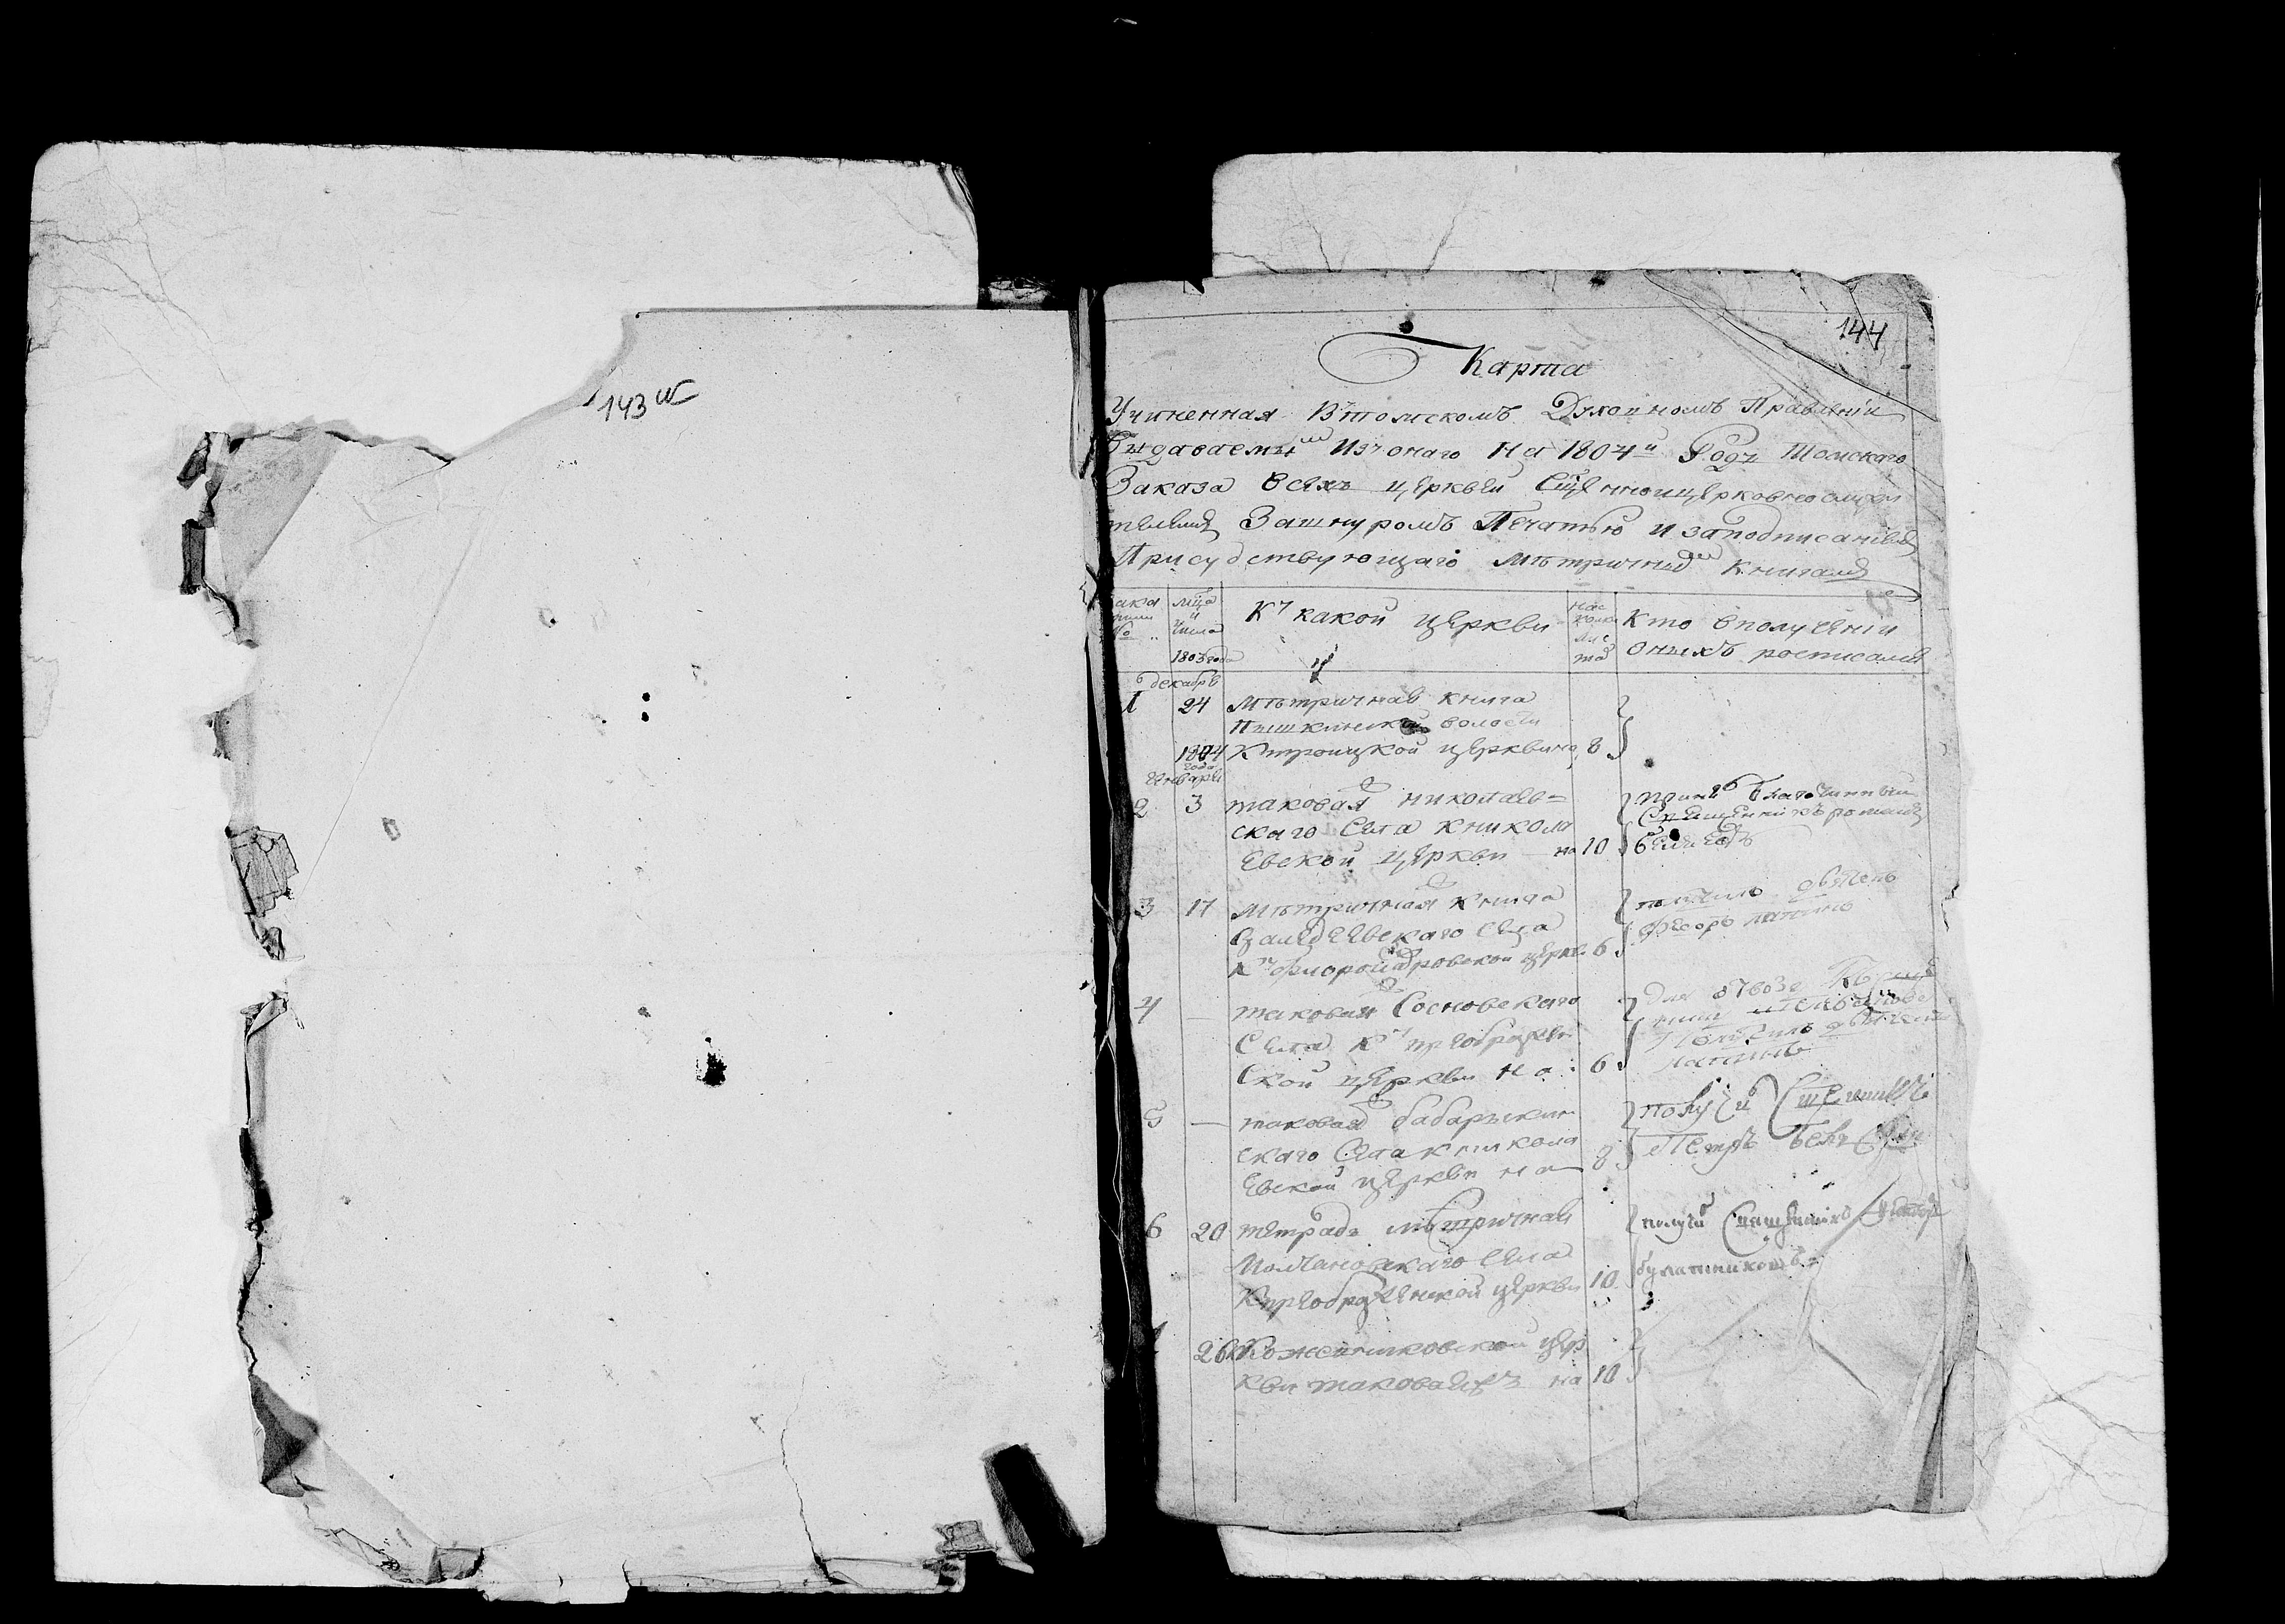 143 об
144
Карта
Учиненная Втомскомъ Духовномъ Правленiи
Выдаваемымъ Изъ онаго На 1804й Годъ Томскаго
Заказа всехъ церквей Сщенноицерковнослужи
телямъ Зашнуромъ Печатью и заподписанiемъ
Присудствующаго Метричнымъ Книгамъ
№ мца и Числа 1803 года
Къ какой церкви
На сколко листов
Кто вполученiи
оныхъ росписался
декабрь
1 24 Метричная книга
Пышкинской волости
1804 Ктроицкой церквина 8
года
Генварь
2 3 таковая николаев=
скаго Села кникола
евской церкви на 10
принялъ благочинный
Священникъ романъ
3 17 Метричная книга
села
церкв 6
получилъ
Федоръ лапинъ
4 — таковая Сосновскаго
Села Къ преображен
ской церкви на 6
для отвозу
получилъ
лапинъ
5 — таковая бабарыкин
скаго Села кникола
евской церкви на 8
Петръ
6 20 тетрадь метричная
Молчановскаго села
Кпреображенской церкви 10
получилъ Священникъ
булатниковъ
26 Кожевниковской цер
кви таковаяжъ на 10